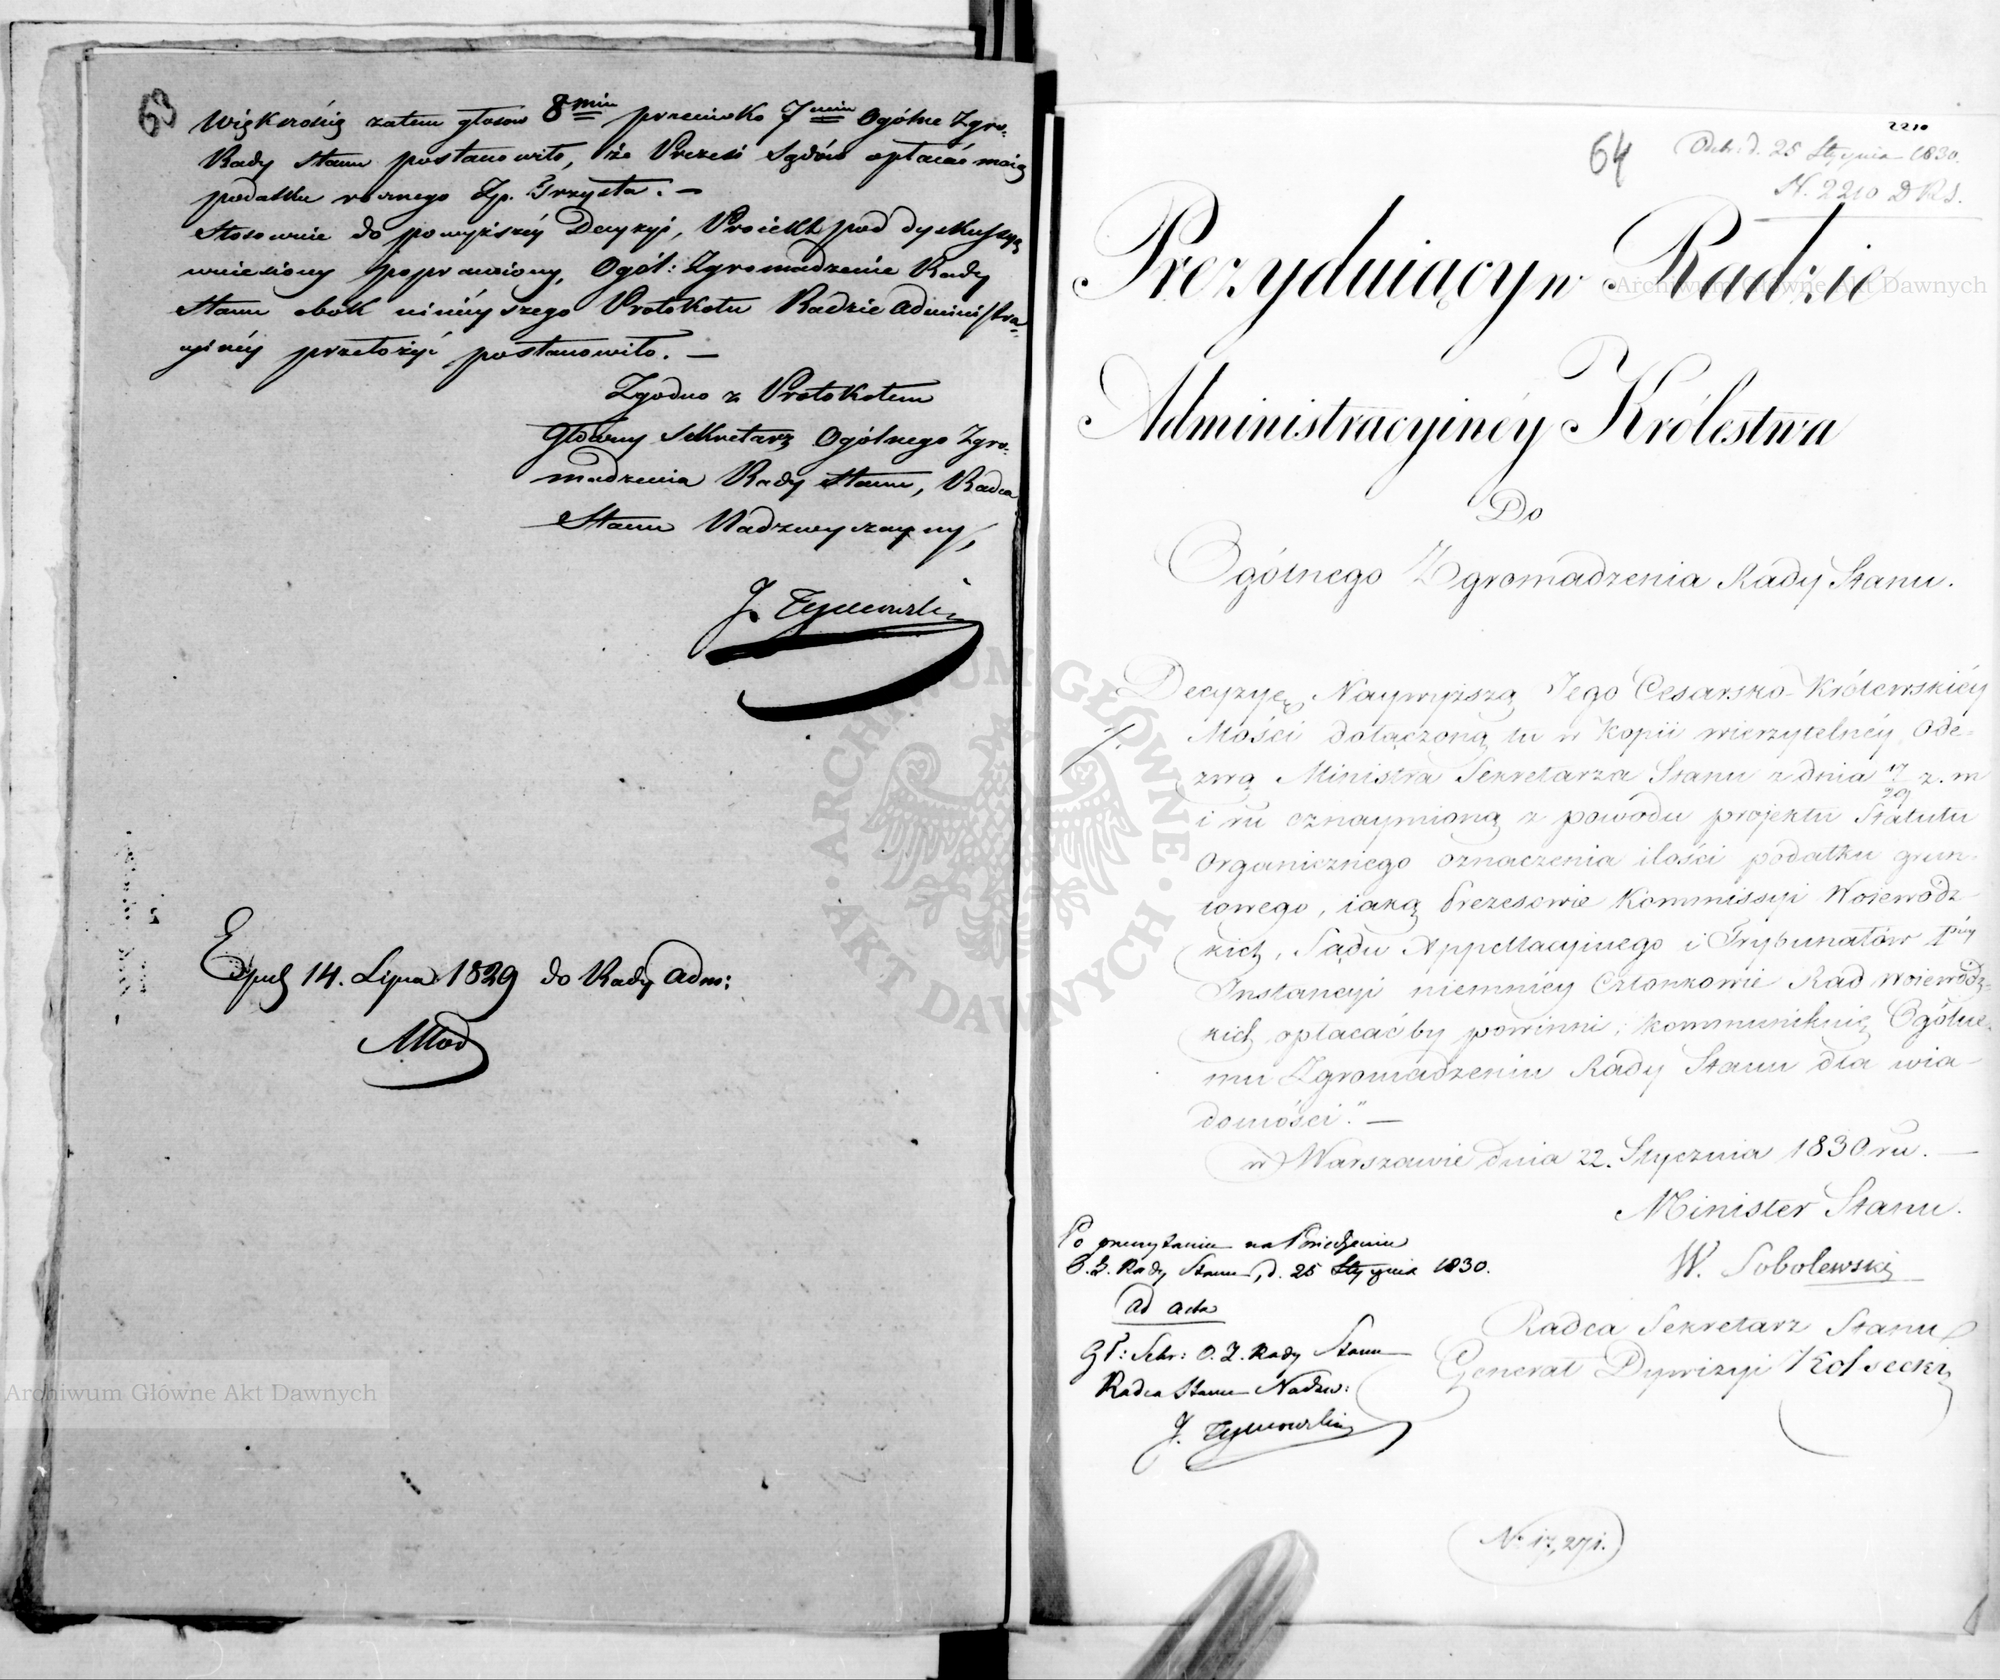 63
Większością zatem głosów 8miu przeciwko 7miu Ogólne Zgro:
Rady Stanu postanowiło, że Prezesi Sądów opłacać maią
podatku rocznego Zp. Trzysta. —
Stosownie do powyższéy Decyzyi, Proiekt pod dyskussyą
wniesiony poprawiony, Ogól: Zgromadzenie Rady
Stanu obok ninieyszego Protokołu Radzie Administra-
cyinéy przełożyć postanowiło. —
Zgodno z Protokołem
Główny Sekretarz Ogólnego Zgro-
madzenia Rady Stanu, Radca
Stanu Nadzwyczayny,
J. Tymowski
14. Lipca 1829 do Rady Adm:
2210
64
Odebr: d. 25 Stycznia 1830.
N. 2210 D R S.
Prezyduiący w Radzie
Administracyinéy Królestwa
Do
Ogólnego Zgromadzenia Rady Stanu.
Decyzyę Naywyższą Jego Cesarsko-Królewskiéy
Mości dołączoną tu w kopii wierzytelnéy Ode-
zwą Ministra Sekretarza Stanu z dnia 17/29 z. m
i ru oznaymioną z powodu projektu Statutu
Organicznego oznaczenia ilości podatku grun-
towego, iaką Prezesowie Kommissyi Woiewódz-
kich, Sądu Appellacyinego i Trybunałów 1széy
Instancyi niemniéy Członkowie Rad Woiewódz-
kich opłacać by powinni; kommunikuię Ogólne-
mu Zgromadzeniu Rady Stanu dla wia-
domości." —
w Warszawie dnia 22. Stycznia 1830 ru. —
Minister Stanu.
W. Sobolewski
Radca Sekretarz Stanu
Generał Dywizyi Kossecki
Po przeczytaniu na Posiedzeniu
O. Z. Rady Stanu, d. 25 Stycznia 1830.
ad acta
Gł: Sekr: O. Z. Rady Stanu
Radca Stanu Nadzw:
J. Tymowski
No 17,271.
Archiwum Główne Akt Dawnych
Archiwum Główne Akt Dawnych
ARCHIWUM GŁÓWNE · AKT DAWNYCH ·